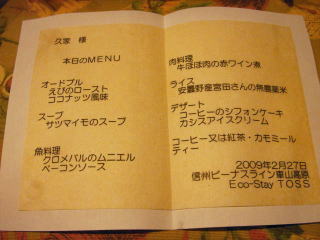 久家 様
本日のMENU
オードブル
えびのロースト
ココナッツ風味
スープ
サツマイモのスープ
魚料理
クロメバルのムニエル
ベーコンソース
肉料理
牛ほほ肉の赤ワイン煮
ライス
安曇野産宮田さんの無農薬米
デザート
コーヒーのシフォンケーキ
カシスアイスクリーム
コーヒー又は紅茶・カモミール
ティー
2009年2月27日
信州ビーナスライン車山高原
Eco-Stay TOSS